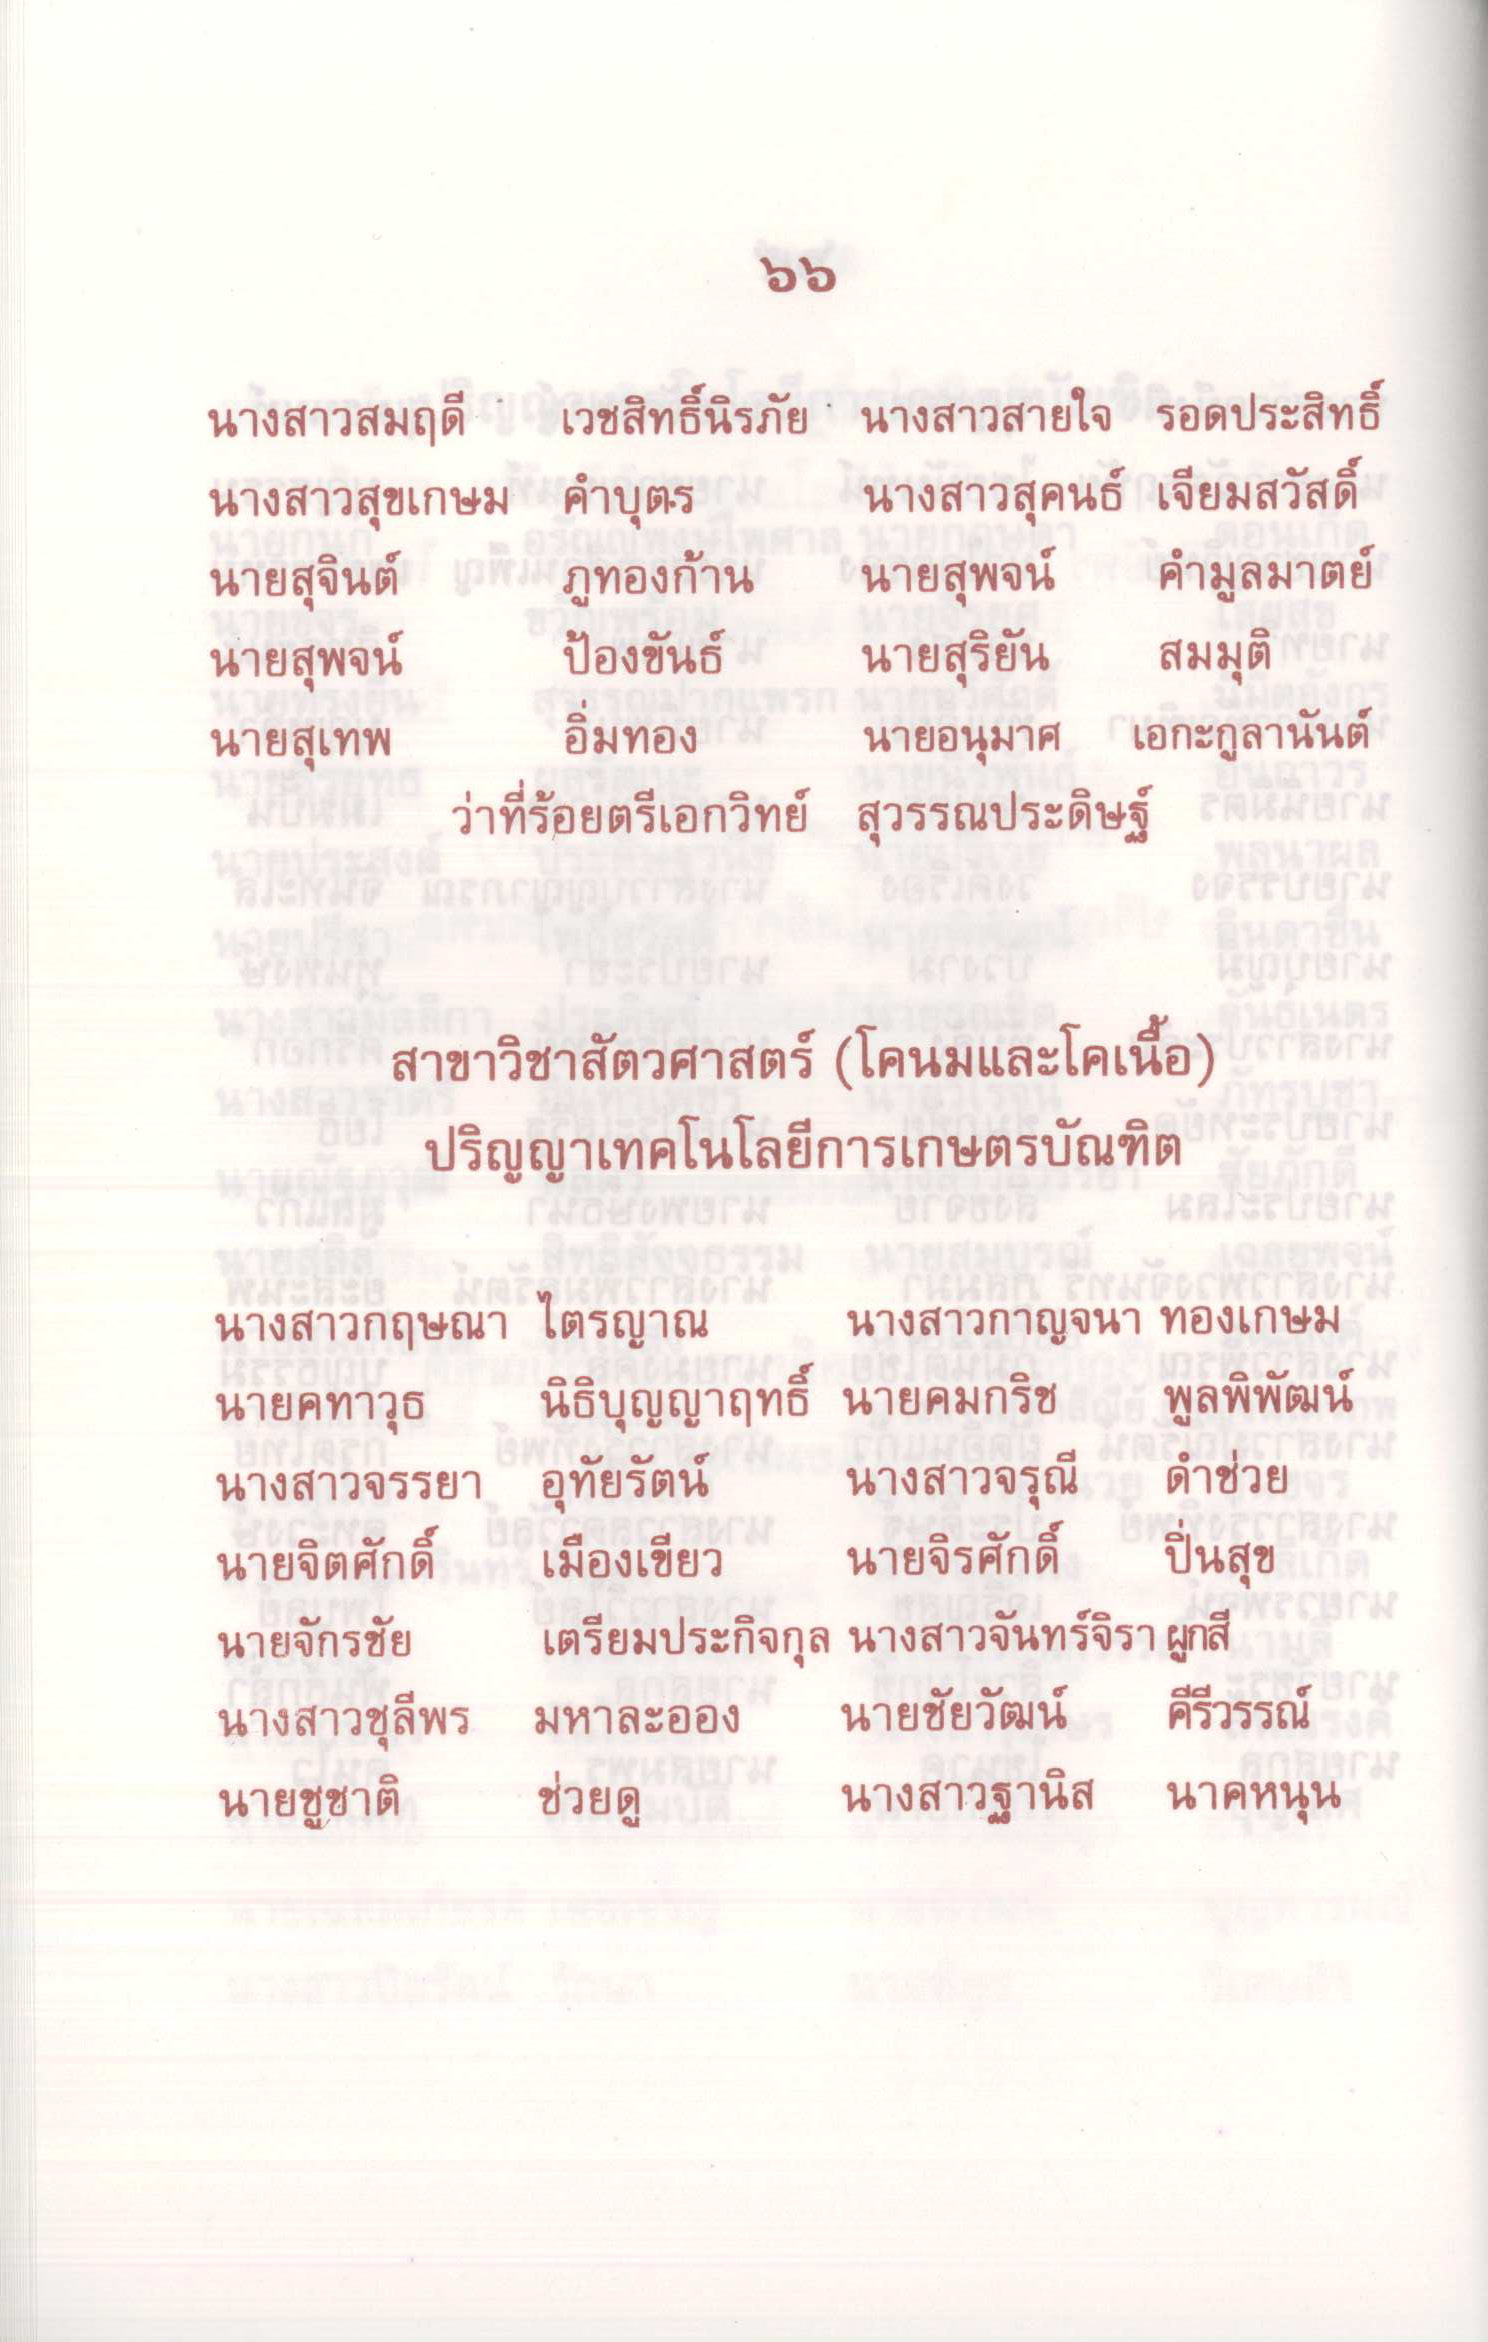 ๖๖
นางสาวสมฤดี เวชสิทธิ์นิรภัย นางสาวสายใจ รอดประสิทธิ์
นางสาวสุขเกษม คำบุตร นางสาวสุคนธ์ เจียมสวัสดิ์
นายสุจินต์ ภูทองก้าน นายสุพจน์ คำมูลมาตย์
นายสุพจน์ ป้องขันธ์ นายสุริยัน สมมุติ
นายสุเทพ อิ่มทอง นายอนุมาศ เอกะกูลานันต์
ว่าที่ร้อยตรีเอกวิทย์ สุวรรณประดิษฐ์
สาขาวิชาสัตวศาสตร์ (โคนมและโคเนื้อ)
ปริญญาเทคโนโลยีการเกษตรบัณฑิต
นางสาวกฤษณา ไตรญาณ นางสาวกาญจนา ทองเกษม
นายคทาวุธ นิธิบุญญาฤทธิ์ นายคมกริช พูลพิพัฒน์
นางสาวจรรยา อุทัยรัตน์ นางสาวจรุณี ดำช่วย
นายจิตศักดิ์ เมืองเขียว นายจิรศักดิ์ ปิ่นสุข
นายจักรชัย เตรียมประกิจกุล นางสาวจันทร์จิรา ผูกสี
นางสาวชุลีพร มหาละออง นายชัยวัฒน์ คีรีวรรณ์
นายชูชาติ ช่วยดู นางสาวฐานิส นาคหนุน